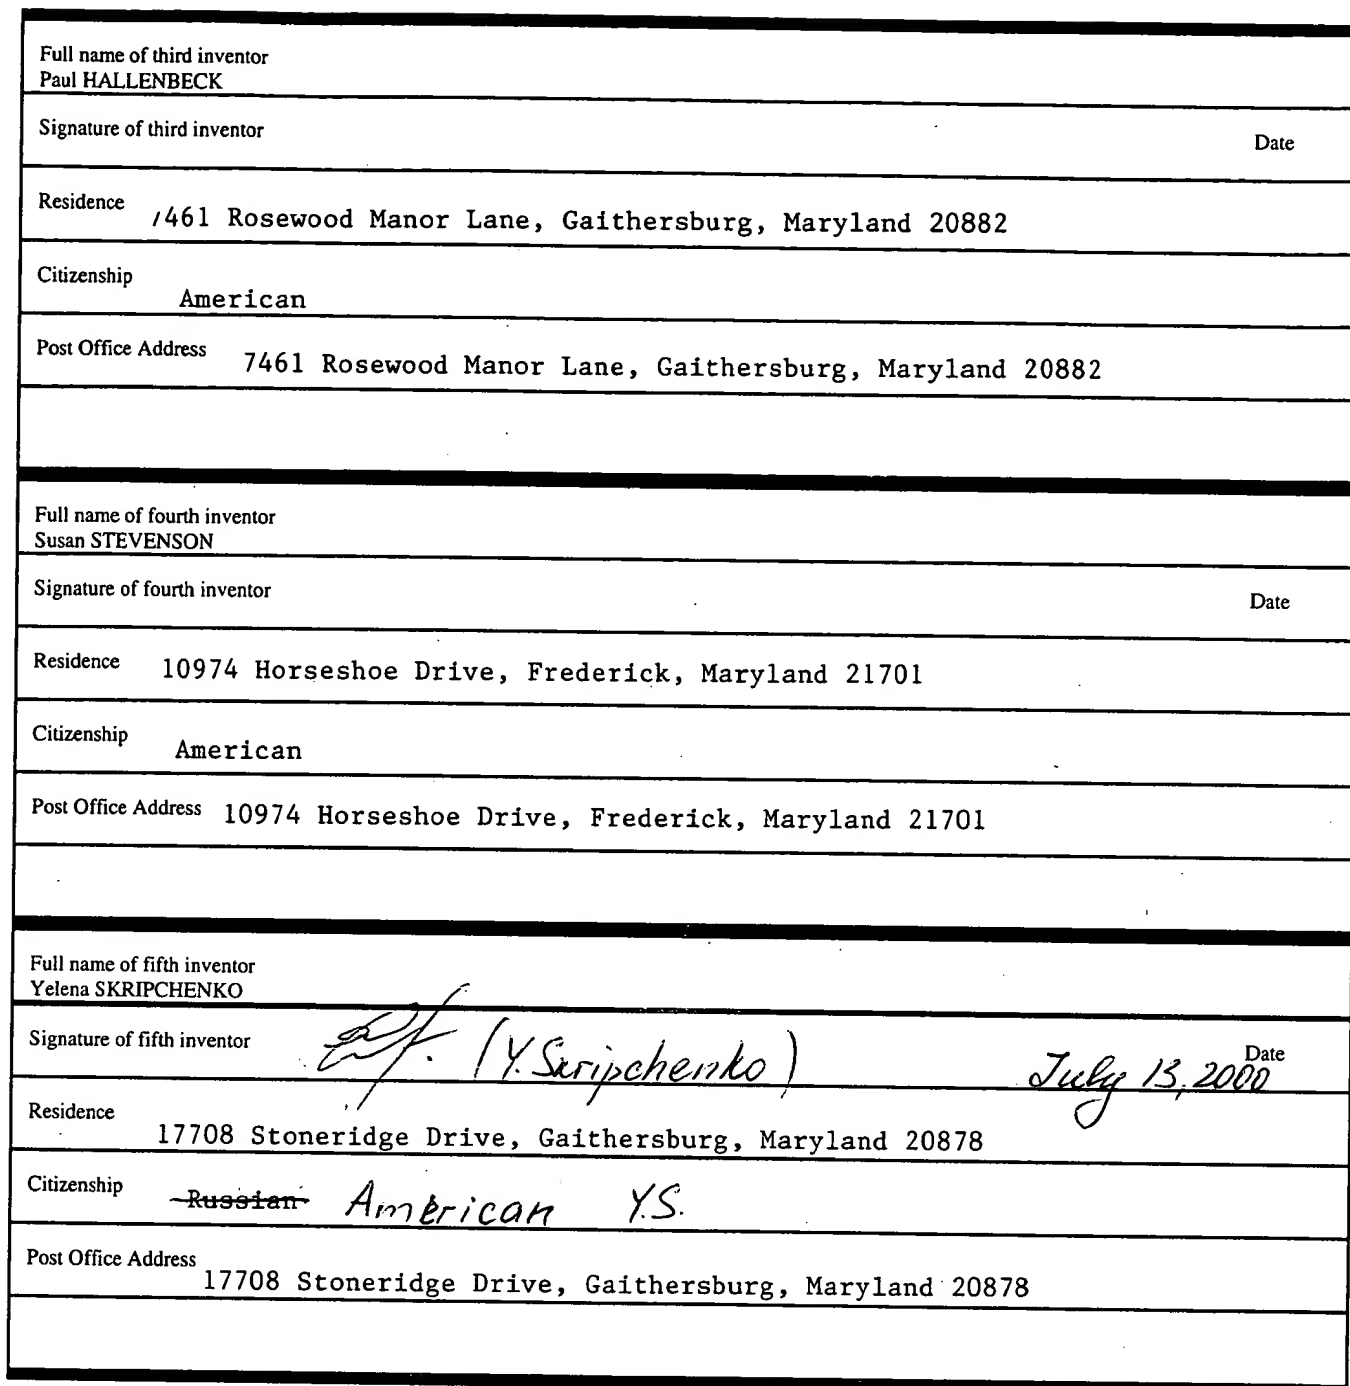 Full name of third inventor
Paul HALLENBECK
Signature of third inventor Date
Residence 7461 Rosewood Manor Lane, Gaithersburg, Maryland 20882
Citizenship American
Post Office Address 7461 Rosewood Manor Lane, Gaithersburg, Maryland 20882
Full name of fourth inventor
Susan STEVENSON
Signature of fourth inventor Date
Residence 10974 Horseshoe Drive, Frederick, Maryland 21701
Citizenship American
Post Office Address 10974 Horseshoe Drive, Frederick, Maryland 21701
Full name of fifth inventor
Yelena SKRIPCHENKO
Signature of fifth inventor (Y. Skripchenko) July 13, 2000 Date
Residence 17708 Stoneridge Drive, Gaithersburg, Maryland 20878
Citizenship Russian American Y.S.
Post Office Address 17708 Stoneridge Drive, Gaithersburg, Maryland 20878